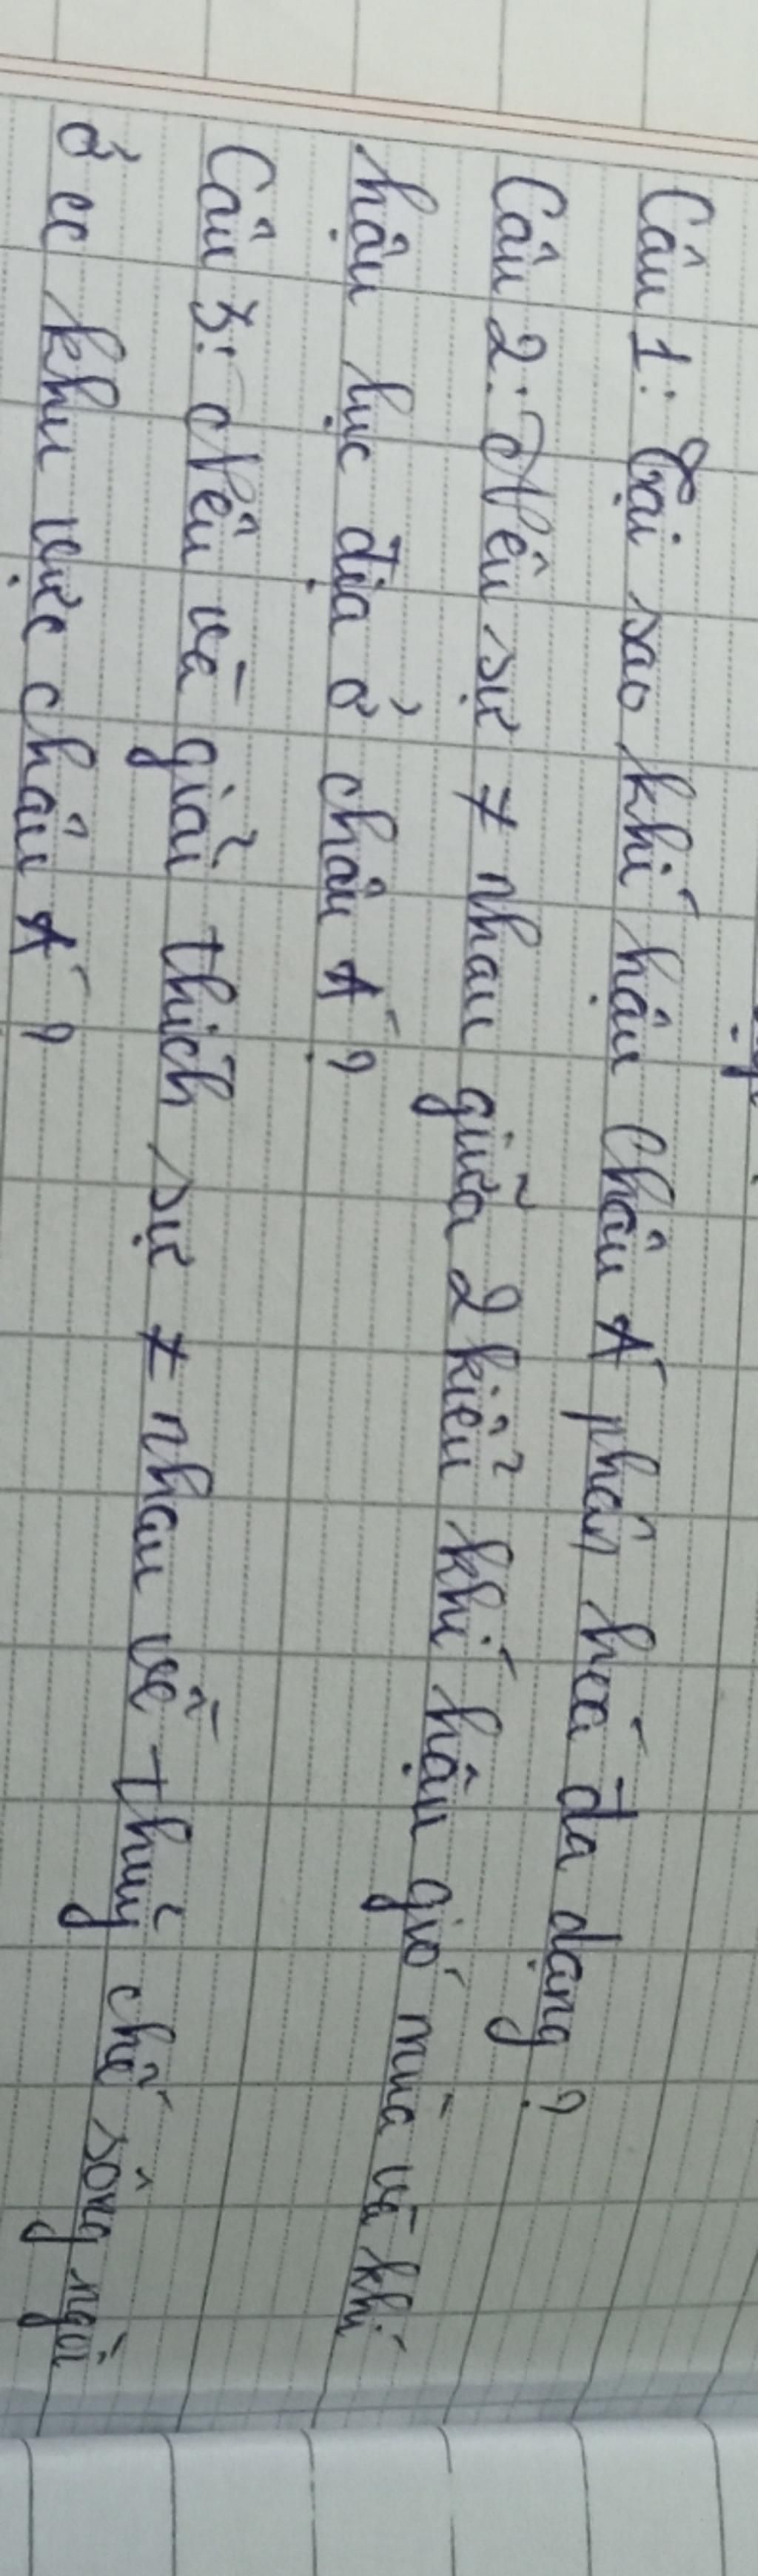 Câu 1: Tại sao khí hậu Châu Á phân hoá đa dạng?
Câu 2: Nêu sự ≠ nhau giữa 2 kiểu khí hậu gió mùa và khí
hậu lục địa ở châu Á?
Câu 3: Nêu và giải thích sự ≠ nhau về thuỷ chế sông ngòi
ở cc khu vực châu Á?